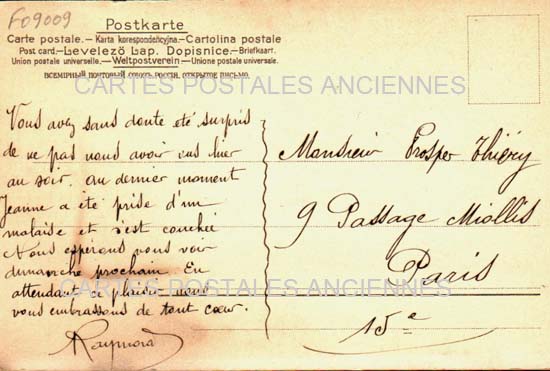 F09009
Postkarte
Carte postale. – Karta korespondencyjna. – Cartolina postale
Post card. – Levelező Lap. Dopisnice. – Briefkaart.
Union postale universelle. – Weltpostverein – Unione postale universale.
ВСЕМІРНЫЙ ПОЧТОВЫЙ СОЮЗЪ РОССІЯ. ОТКРЫТОЕ ПИСЬМО.
CARTES POSTALES ANCIENNES
Vous avez sans doute été surpris
de ne pas nous avoir vus hier
au soir. au dernier moment
Jeanne a été prise d'un
malaise et s'est couchée
Nous espérons vous voir
dimanche prochain. En
attendant ce plaisir nous
vous embrassons de tout cœur.
Raymond
Monsieur Prosper Thiéry
9 Passage Miollis
Paris
CARTES POSTALES ANCIENNES
15e